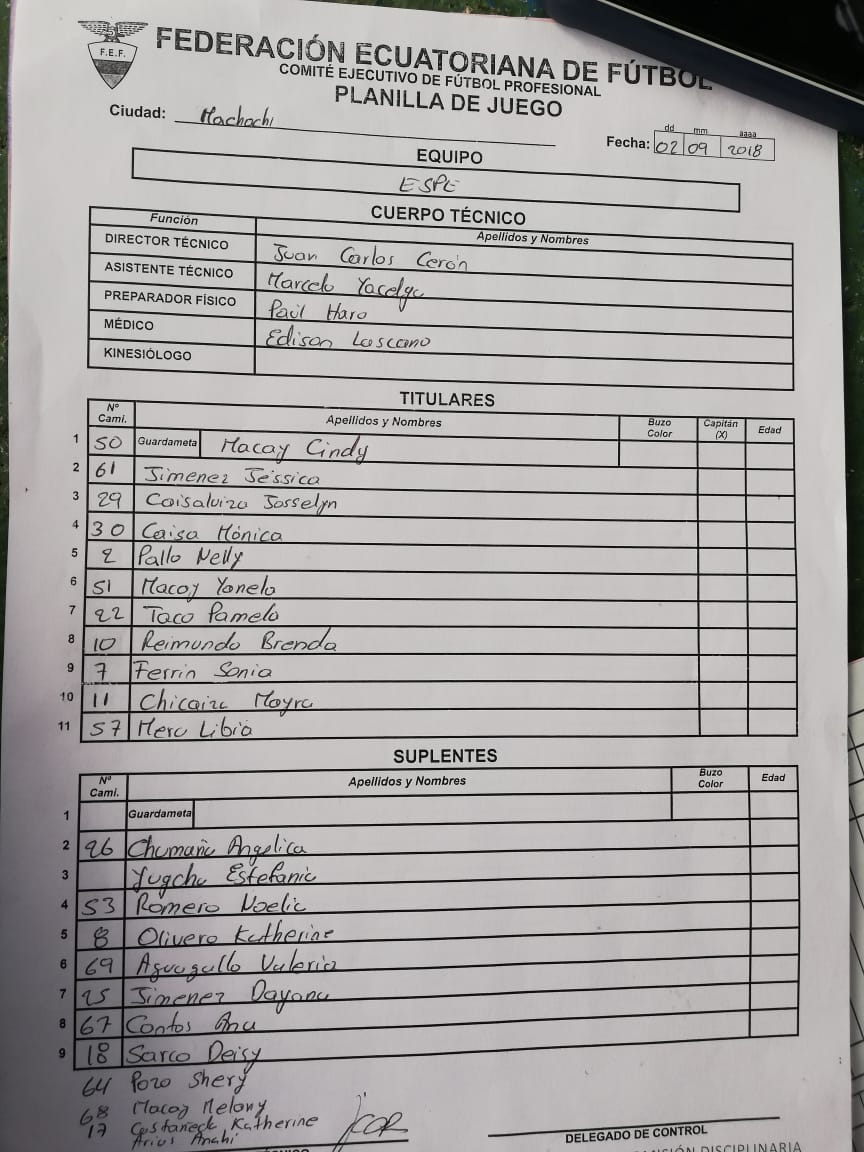 F.E.F.
FEDERACIÓN ECUATORIANA DE FÚTBOL
COMITÉ EJECUTIVO DE FÚTBOL PROFESIONAL
PLANILLA DE JUEGO
Ciudad: Machachi
dd mm aaaa
Fecha: 02 09 2018
EQUIPO
ESPE
CUERPO TÉCNICO
Función Apellidos y Nombres
DIRECTOR TÉCNICO Juan Carlos Cerón
ASISTENTE TÉCNICO Marcelo Yacelga
PREPARADOR FÍSICO Paúl Haro
MÉDICO Edison Lascano
KINESIÓLOGO
TITULARES
Nº Cami. Apellidos y Nombres Buzo Color Capitán (X) Edad
1 50 Guardameta Macay Cindy
2 61 Jimenez Jéssica
3 29 Caisaluiza Josselyn
4 30 Caisa Mónica
5 2 Pallo Nelly
6 51 Macay Yanela
7 22 Taco Pamela
8 10 Reimundo Brenda
9 7 Ferrin Sonia
10 11 Chicaiza Mayra
11 57 Mero Libia
SUPLENTES
Nº Cami. Apellidos y Nombres Buzo Color Edad
1 Guardameta
2 26 Chumaña Angelica
3 Yugcha Estefania
4 53 Romero Noelia
5 8 Olivero Katherine
6 69 Aguagallo Valeria
7 25 Jimenez Dayana
8 67 Cantos Ana
9 18 Sarco Deisy
64 Pozo Shery
68 Macay Melany
17 Katherine
Arias Anahi
DELEGADO DE CONTROL
DISCIPLINARIA